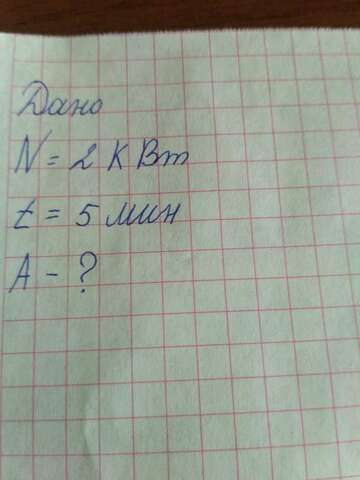 Дано
N = 2 КВт
t = 5 мин
A - ?